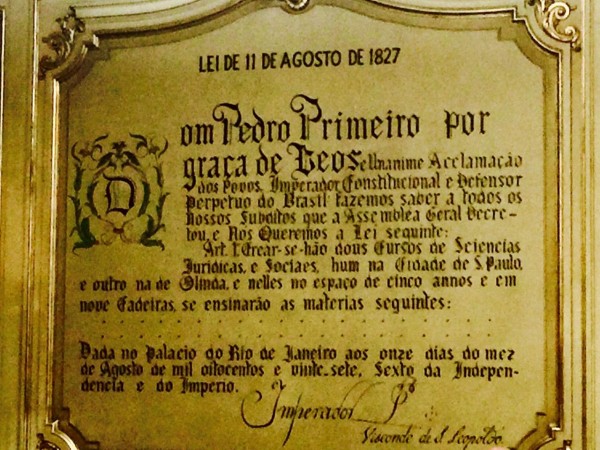 LEI DE 11 DE AGOSTO DE 1827
Dom Pedro Primeiro por
graça de Deos e Unanime Acclamação
dos Povos, Imperador Constitucional e Defensor
Perpetuo do Brasil fazemos saber a todos os
Nossos Subditos que a Assemblea Geral Decre-
tou, e Nos Queremos a Lei seguinte:
Art. 1. Crear-se-hão dous Cursos de Sciencias
Juridicas, e Sociaes, hum na Cidade de S. Paulo,
e outro na de Olinda, e nelles no espaço de cinco annos e em
nove Cadeiras, se ensinarão as materias seguintes:
Dada no Palacio do Rio de Janeiro aos onze dias do mez
de Agosto de mil oitocentos e vinte-sete, Sexto da Indepen-
dencia e do Imperio.
Imperador P
Visconde de S. Leopoldo.